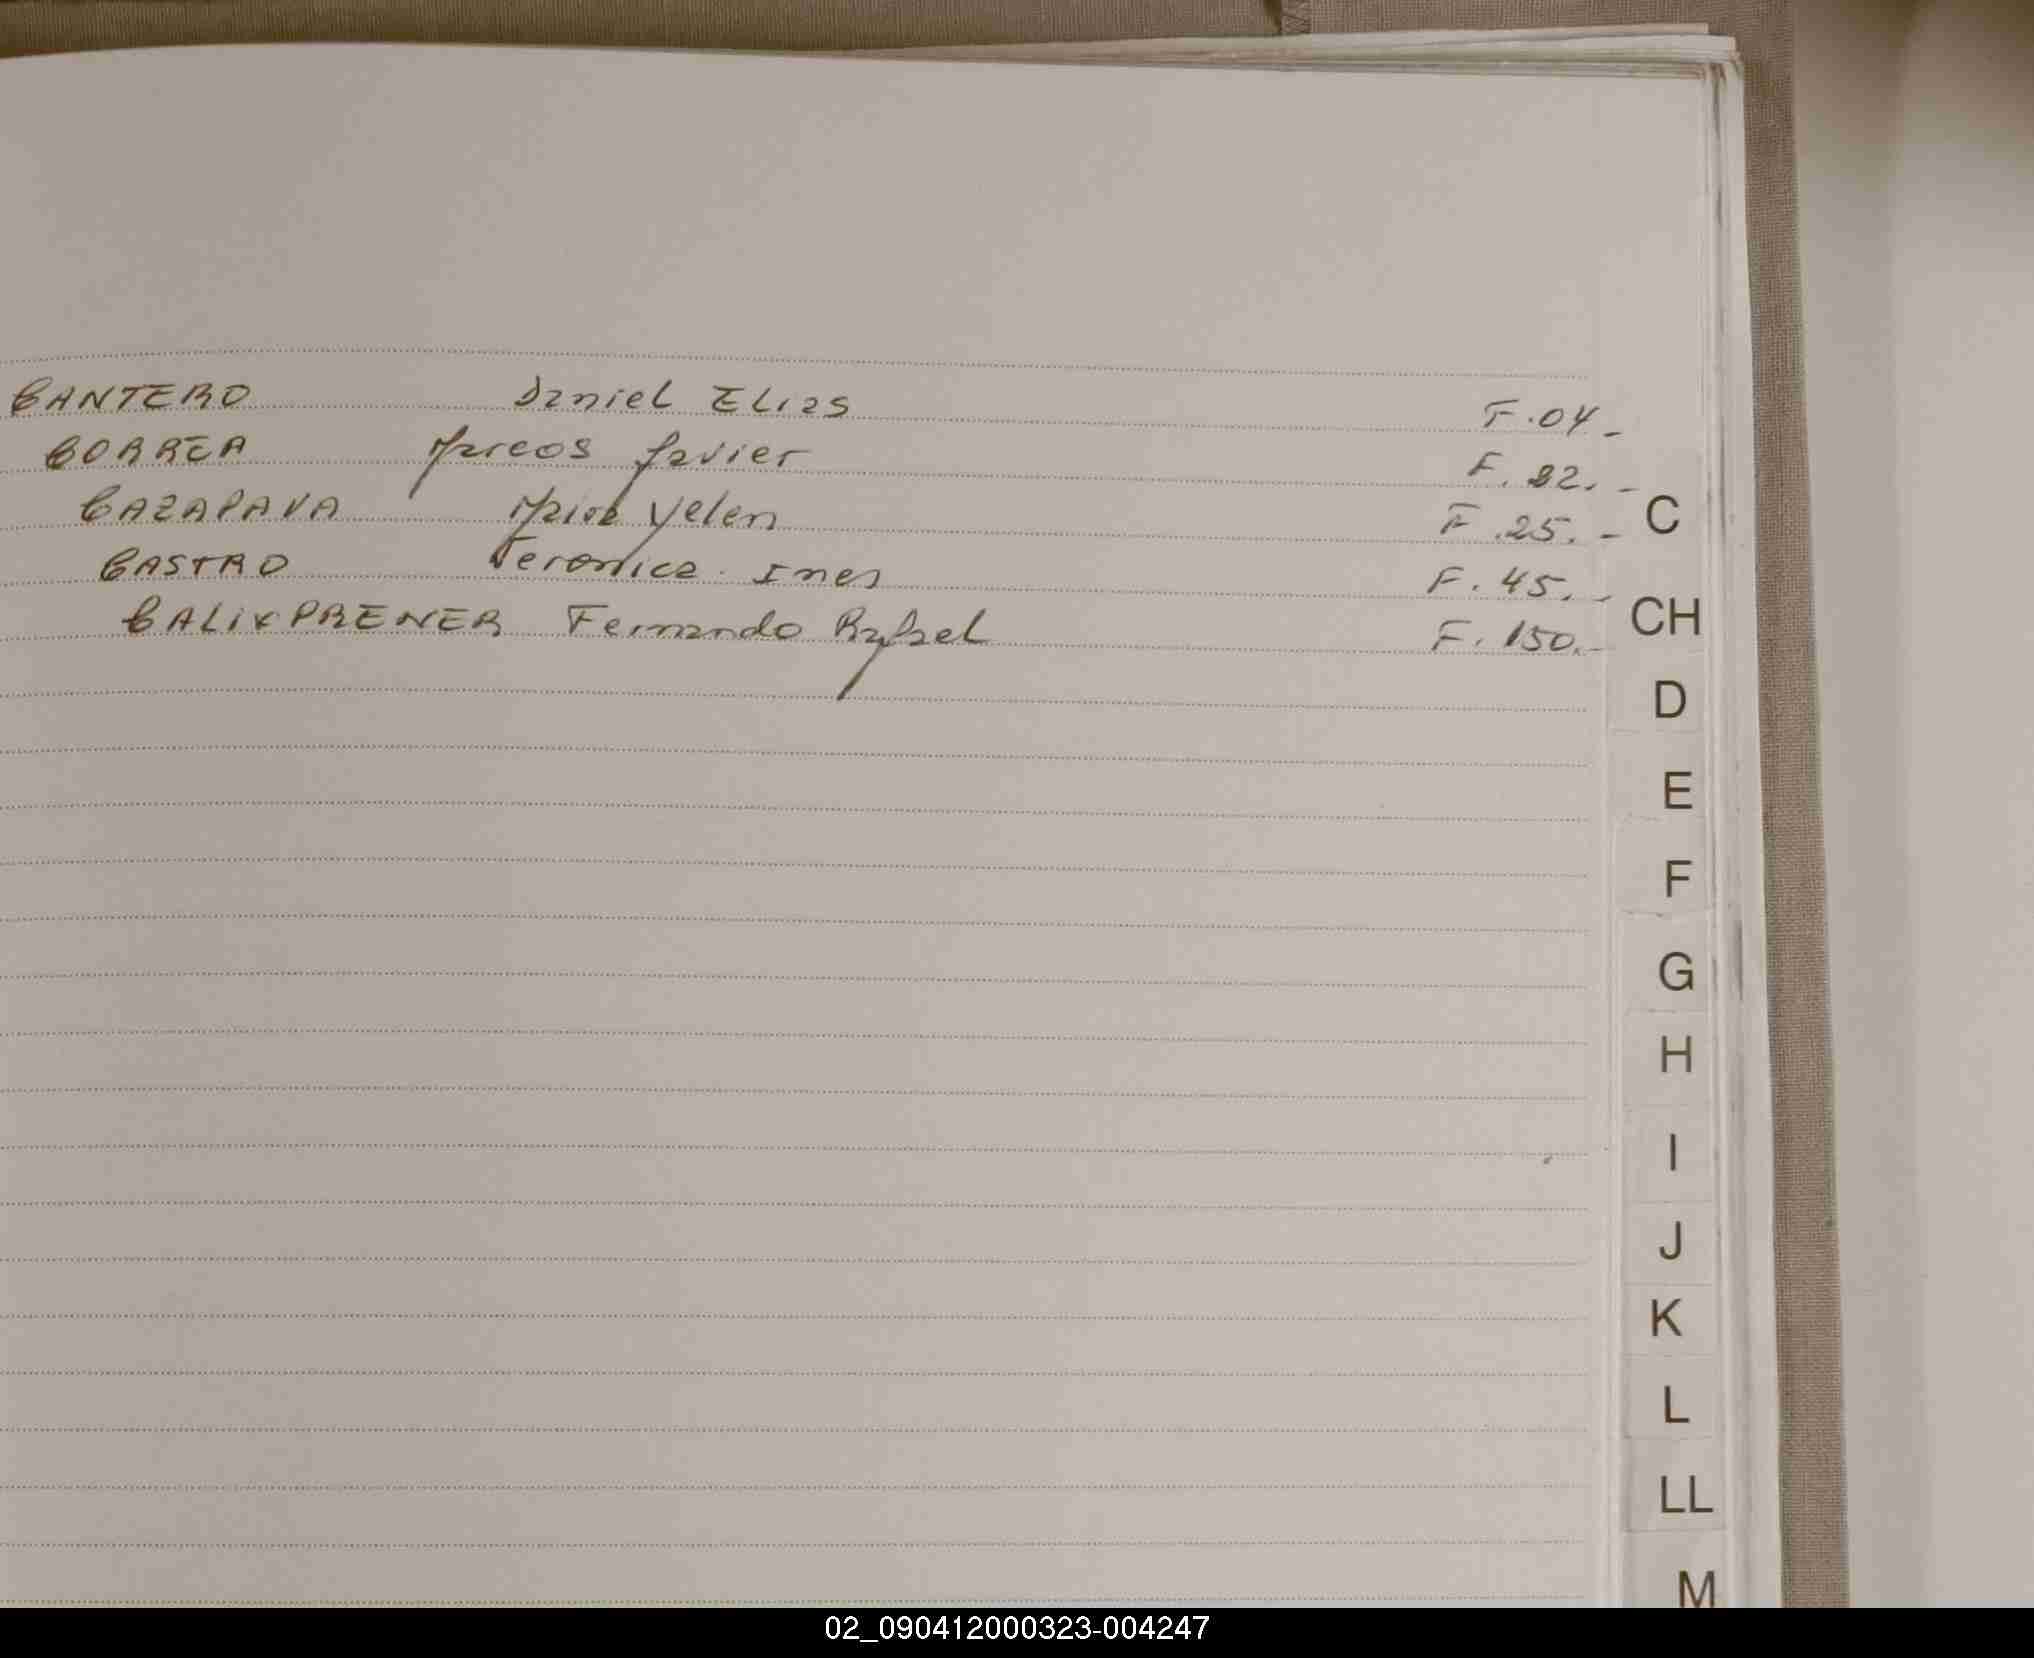 CANTERO Daniel Elias F.04-
CORREA Marcos Javier F.22.-
CAZAPAVA Yelen F.25.-
CASTRO Veronica Ines F.45.-
CALIXPRENER Fernando Rafael F.150.-
C
CH
D
E
F
G
H
I
J
K
L
LL
M
02_090412000323-004247